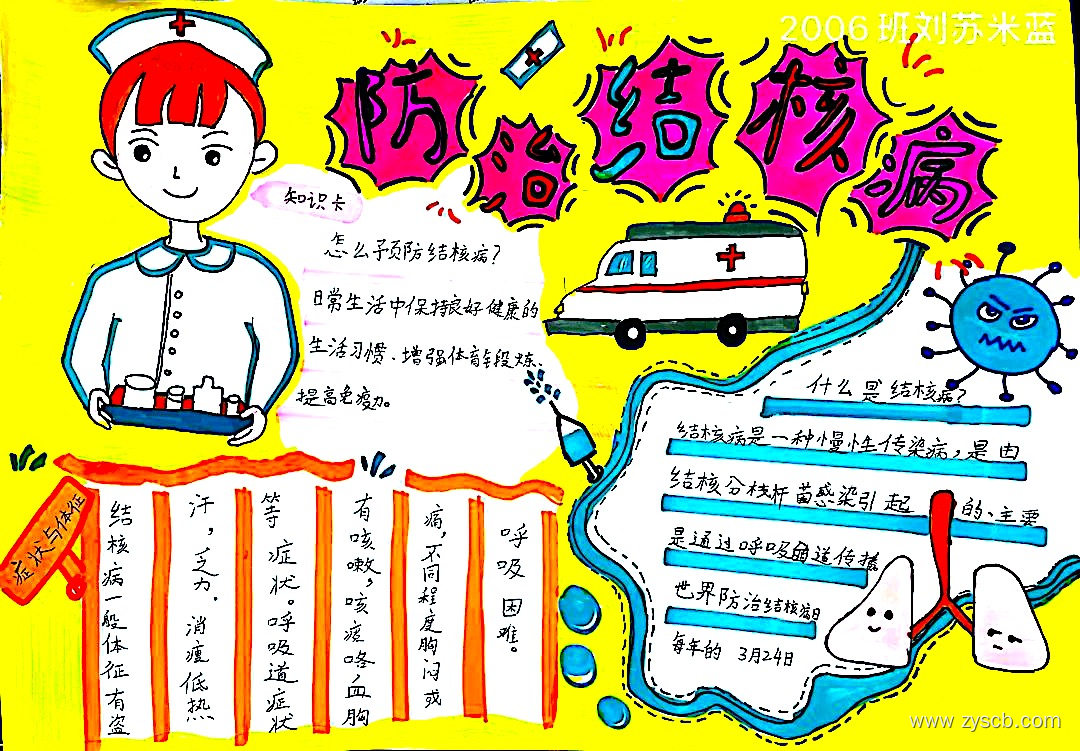 2006班刘苏米蓝
防治结核病
知识卡
怎么予预防结核病?
日常生活中保持良好健康的
生活习惯、增强体育锻炼、
提高免疫力。
什么是结核病?
结核病是一种慢性传染病,是由
结核分枝杆菌感染引起的、主要
是通过呼吸道传播
世界防治结核病日
每年的 3月24日
症状与体征
结核病一般体征有盗
汗,乏力、消瘦低热
等症状。呼吸道症状
有咳嗽,咳痰咯血胸
痛,不同程度胸闷或
呼吸困难。
www.zyscb.com